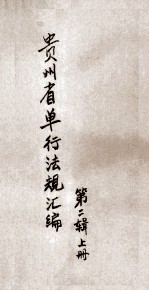 贵州省单行法规汇编
第二辑上册